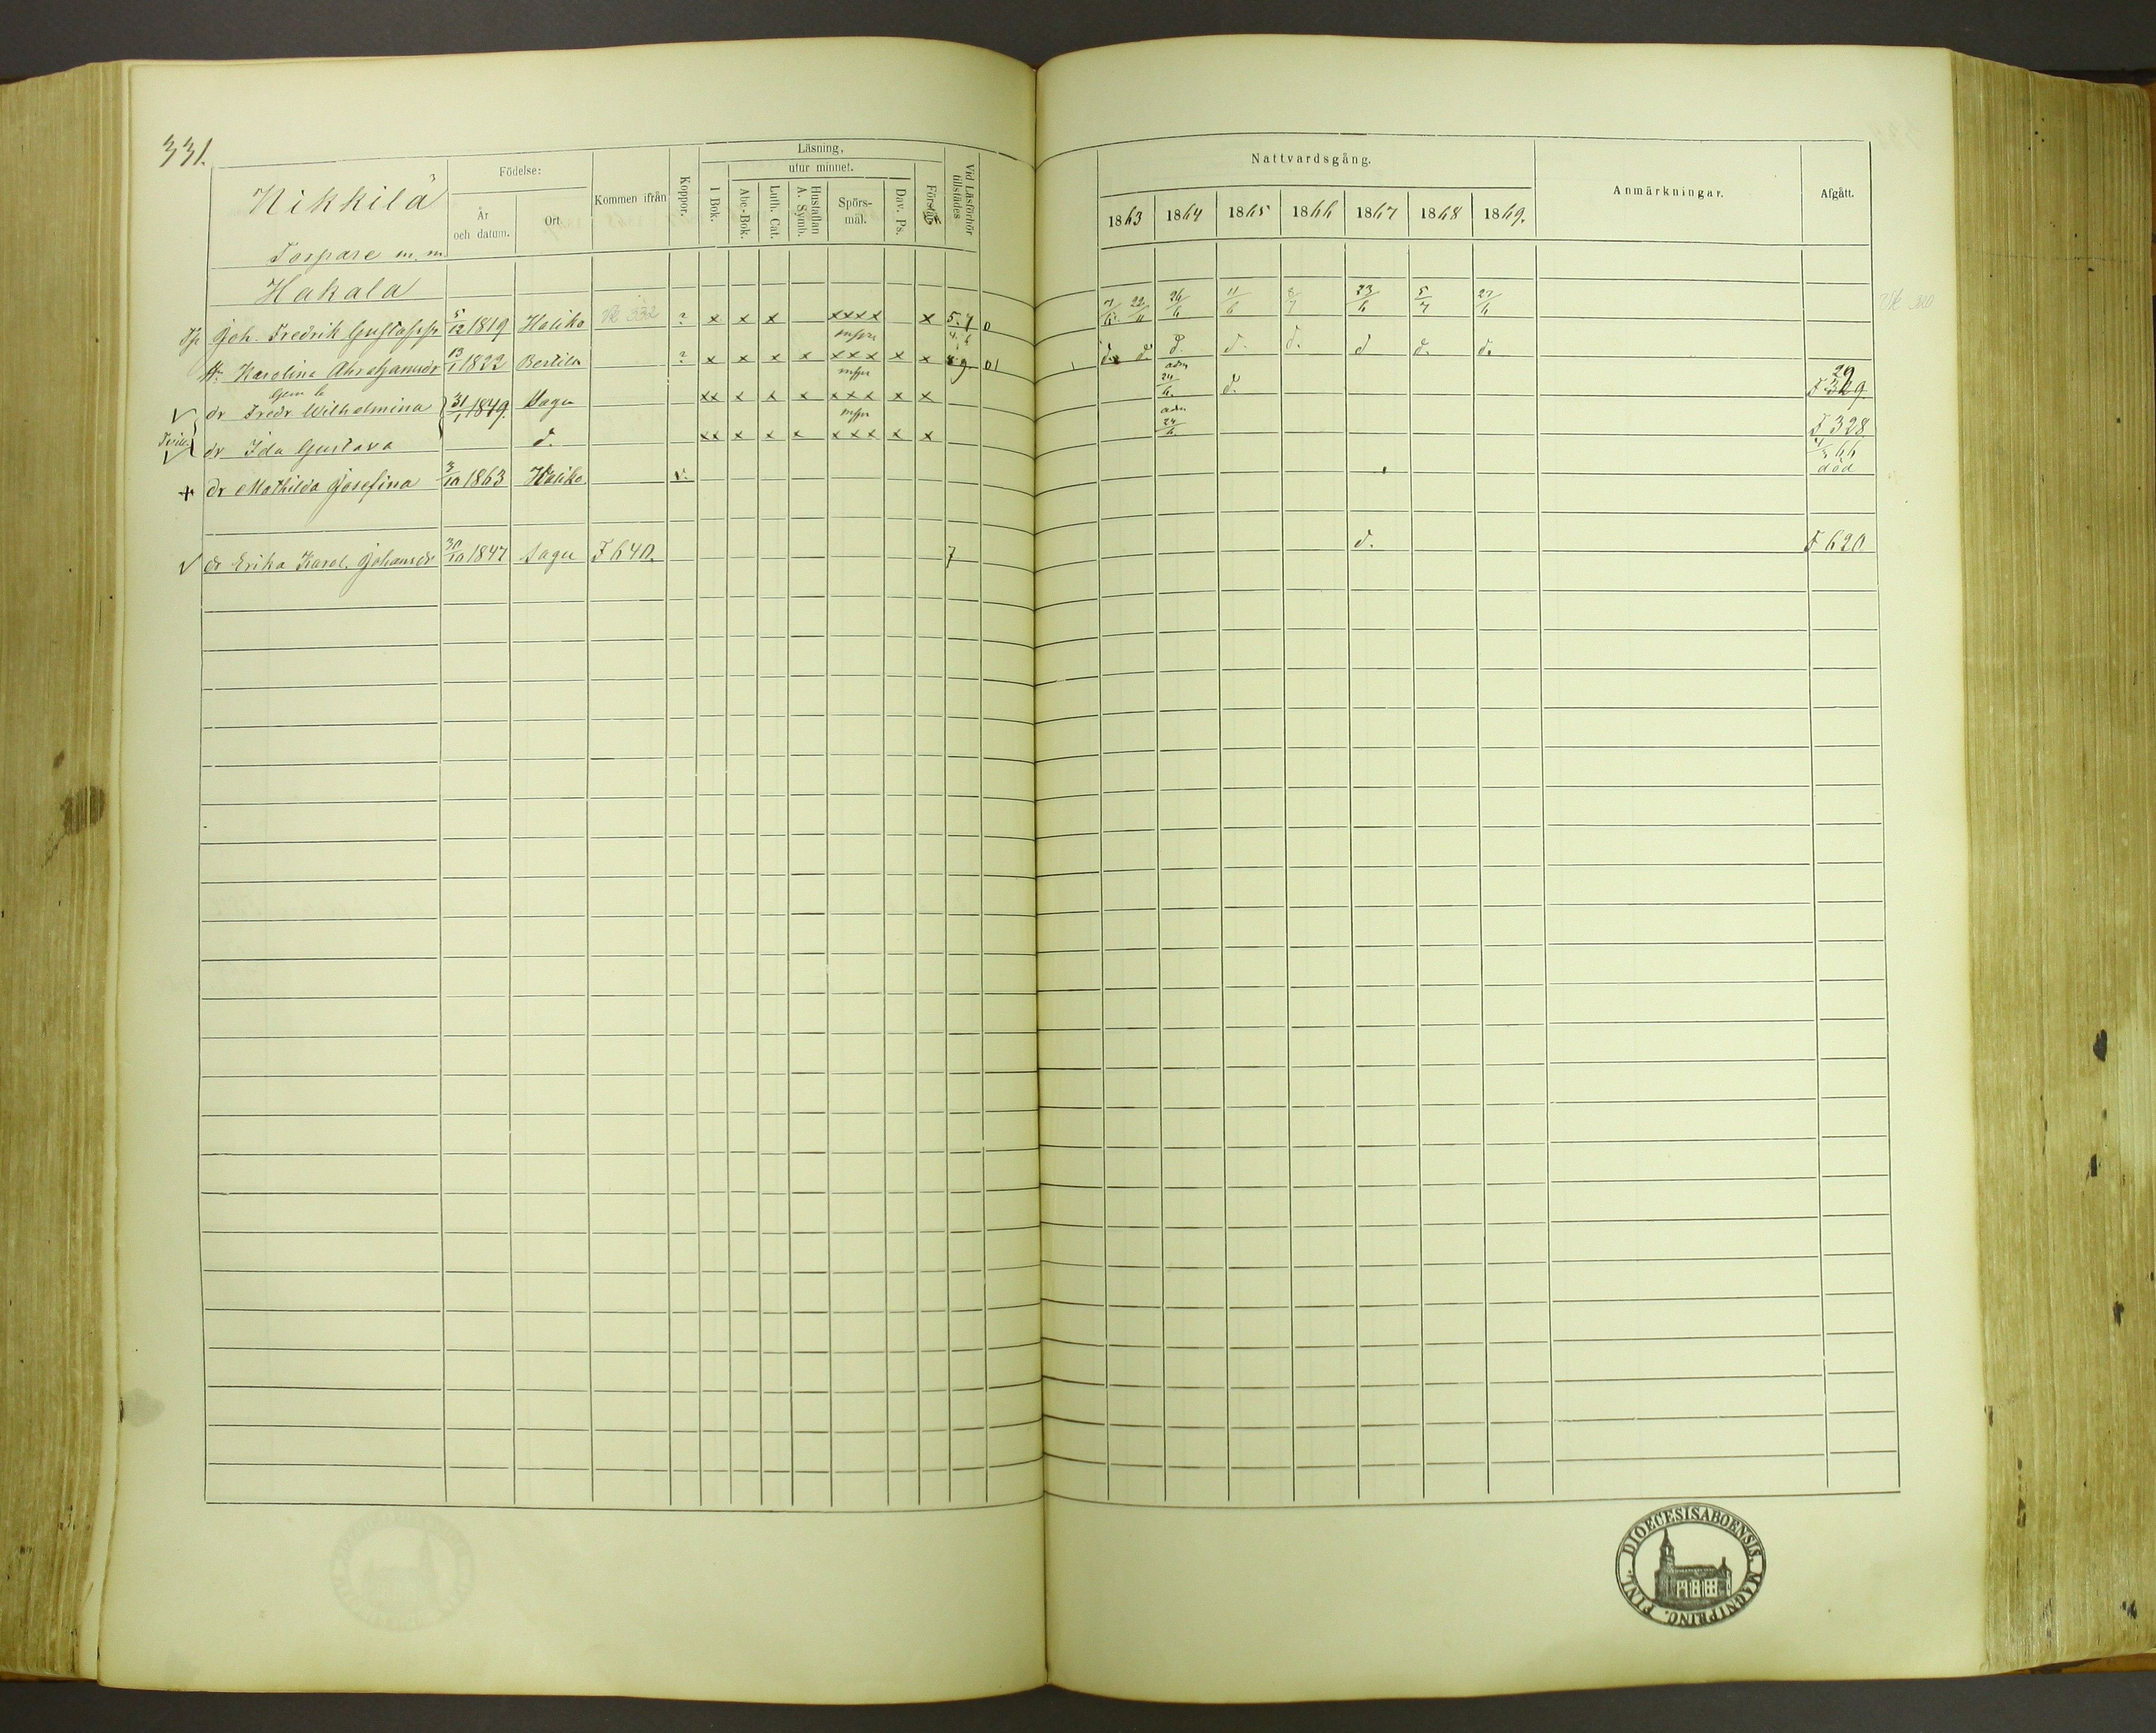 331.
Nikkilä
Torpare m. m.
Födelse:
År och datum.
Ort
Kommen ifrån
Koppor.
Läsning,
utur minnet.
I Bok.
Abc-Bok.
Luth. Cat.
Hustaflan A. Symb.
Spörs-mål.
Dav. Ps.
Förstånd
Vid Läsförhör tillstädes
Nattvardsgång.
1863 1864 1865 1866 1867 1868 1869.
Anmärkningar.
Afgått.
Hakala
Tp Joh. Fredrik Gustafss 5/12 1819 Haliko Vk 332 ? x x x xxxx x 5. 7 0 7/6 22/11 26/6 11/6 8/7 23/6 5/7 27/6
H. Karolina Abrahamsdr 13/1 1822 Bertila ? x x x x xxx x x 9. 01 d. d. d. d. d. d d. d.
dr Fredr Wilhelmina 31/1 1849. Sagu xx x x x xxx x x adm 24/6 d. F 329
Tvill. dr Ida Gustava d. xx x x x xxx x x adm 24/6 F 328
+ dr Mathilda Josefina 3/10 1863 Haliko. v. 66 död
√ dr Erika Karol. Johansdr 30/10 1847 Sagu F 640. 7 d. F 620
DIOECESIS ABOENSIS. MAGNI PRINC. FINL.